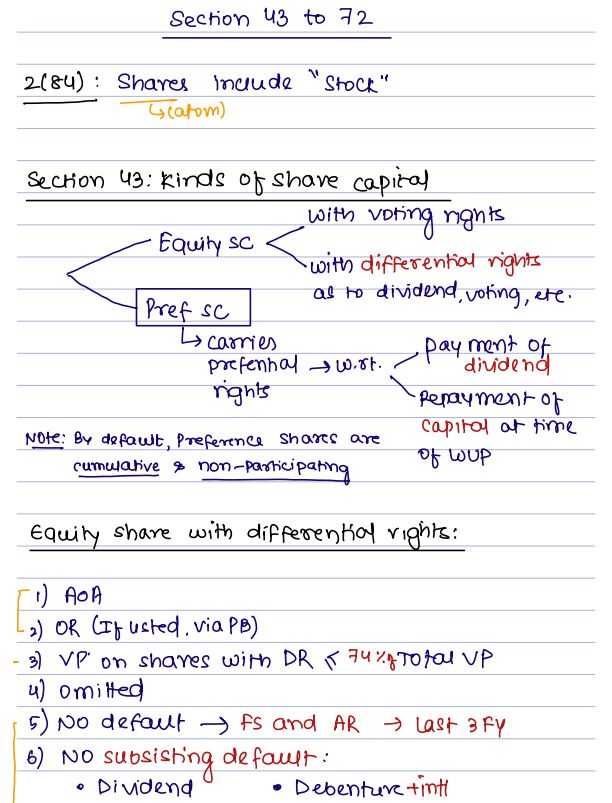 Section 43 to 72
2(84): Shares include "Stock"
↳(atom)
Section 43: Kinds of share capital
with voting rights
Equity SC
with differential rights
as to dividend, voting, etc.
Pref SC
↳ carries prefential rights → w.r.t.
payment of dividend
Repayment of capital at time of WUP
NOTE: By default, Preference shares are
cumulative & non-participating
Equity share with differential rights:
1) AOA
2) OR (If listed, via PB)
3) VP on shares with DR ≤ 74% of Total VP
4) omitted
5) NO default → FS and AR → Last 3 FY
6) NO subsisting default:
• Dividend • Debenture + int